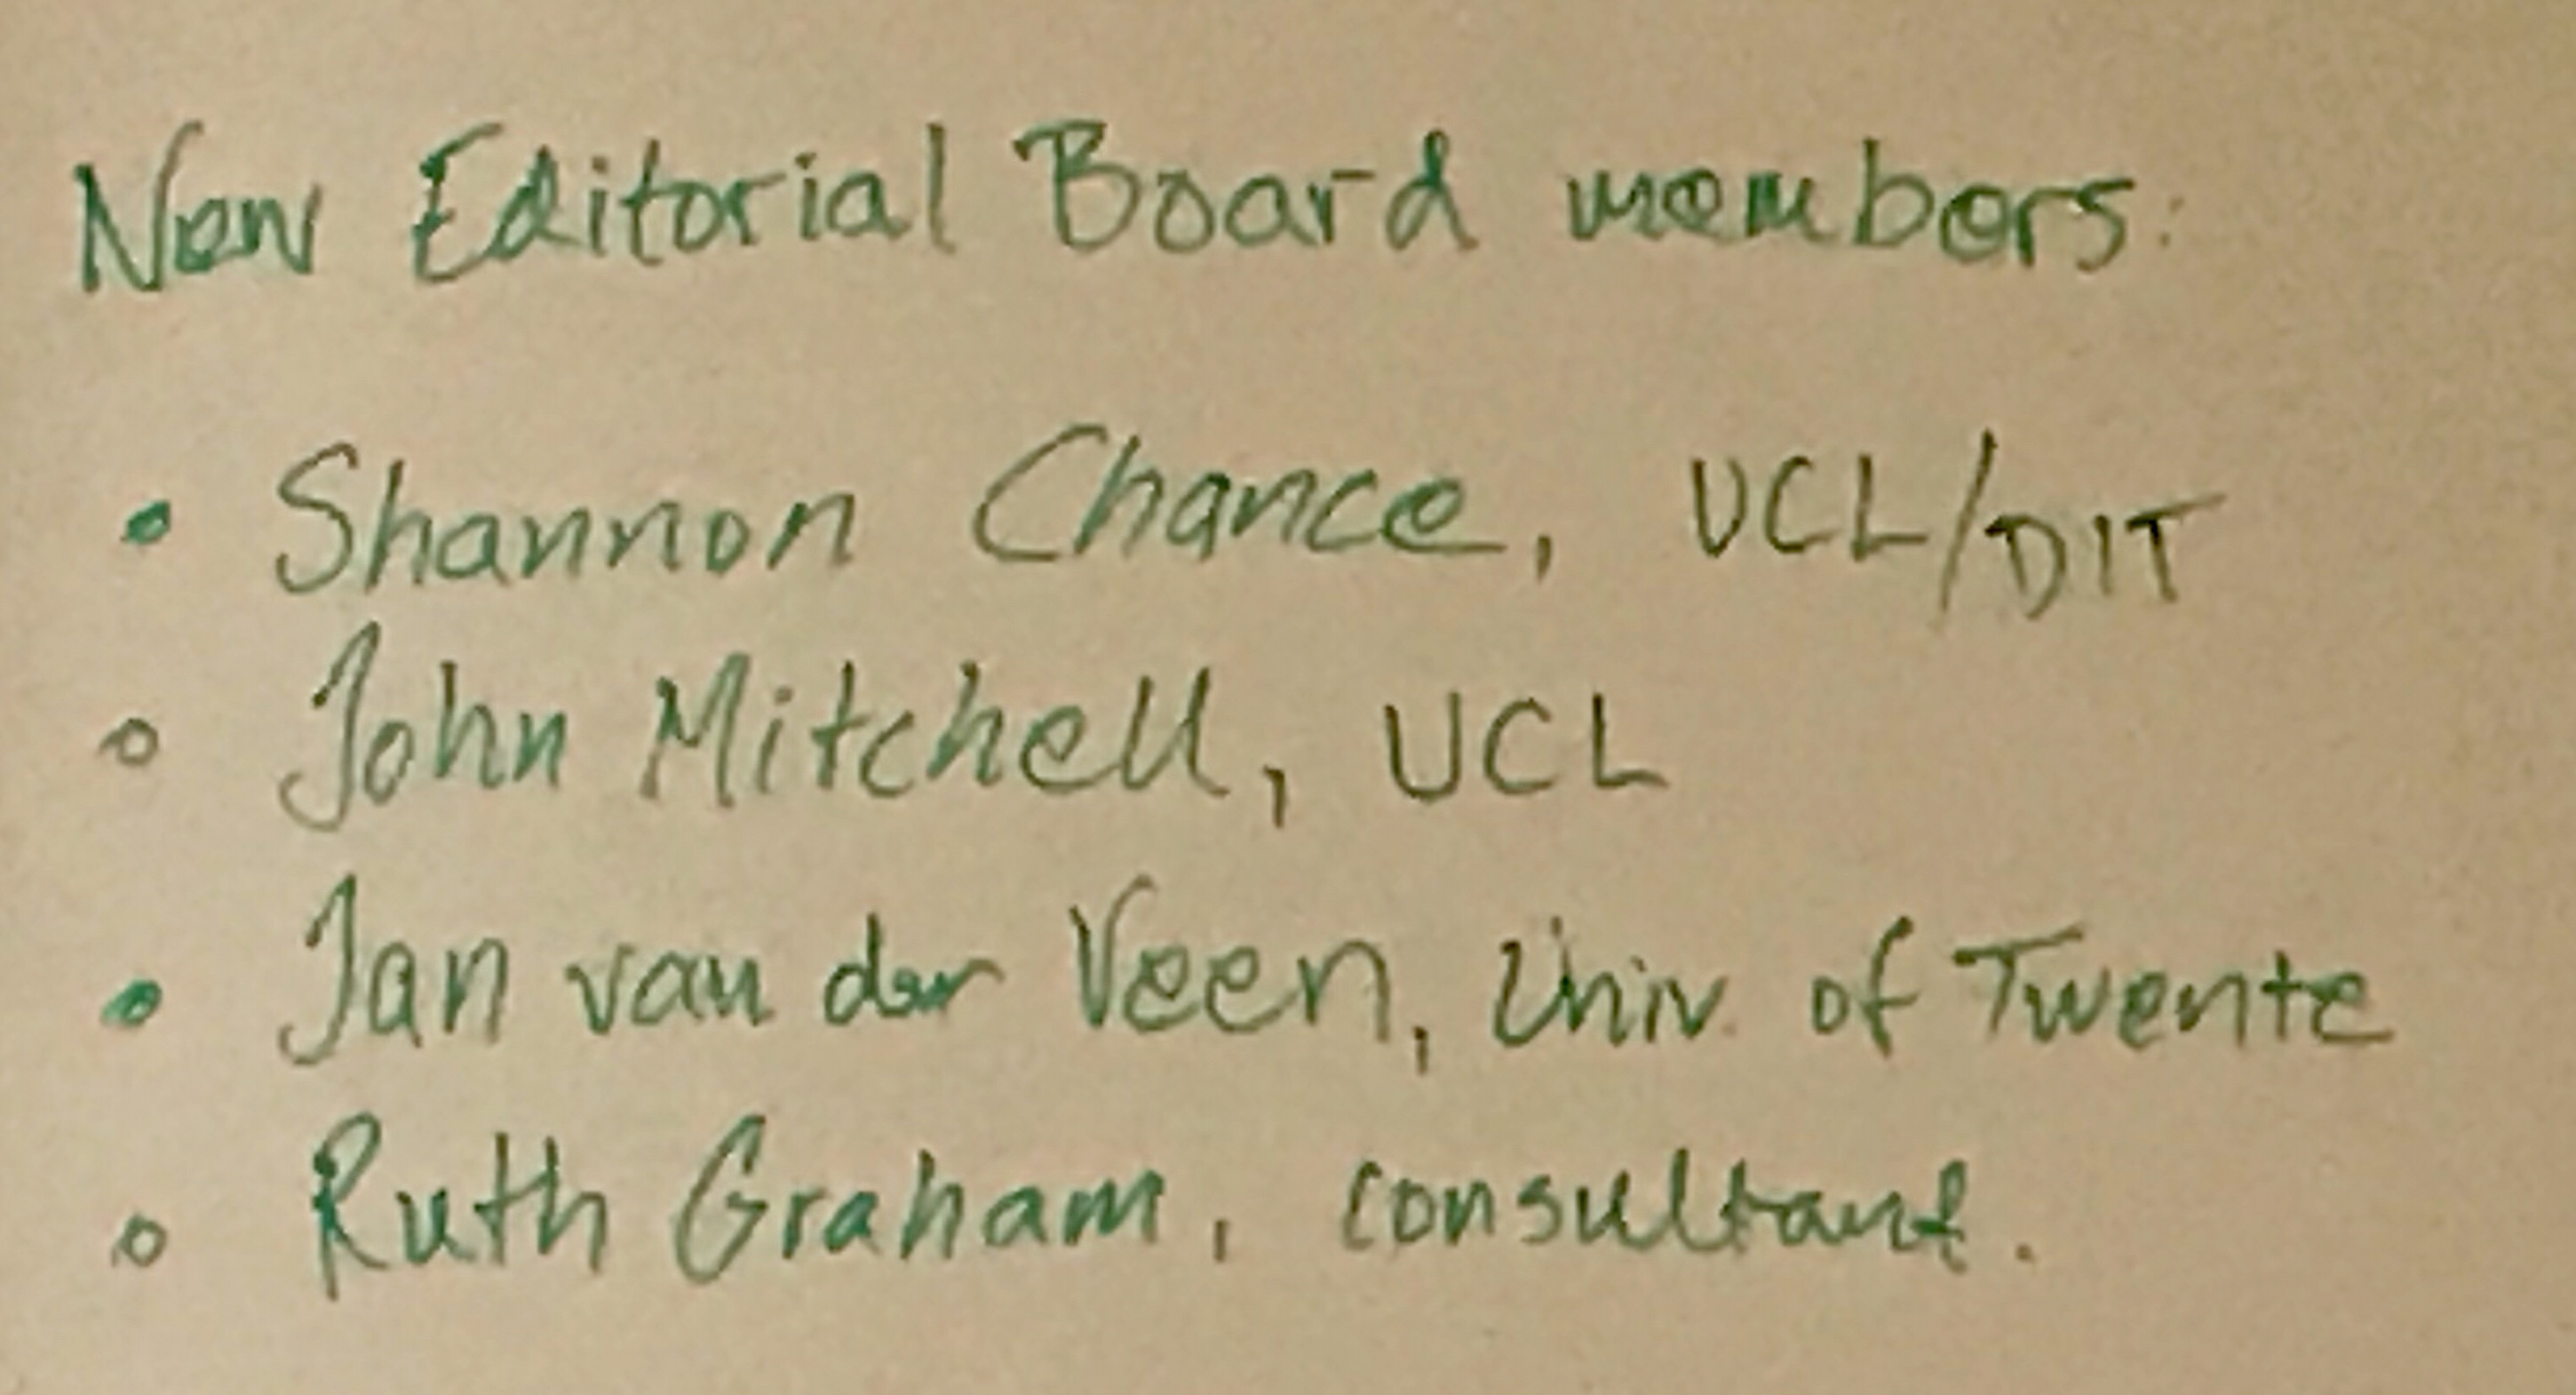 New Editorial Board members:
• Shannon Chance, UCL/DIT
• John Mitchell, UCL
• Jan van der Veen, Univ. of Twente
• Ruth Graham, consultant.